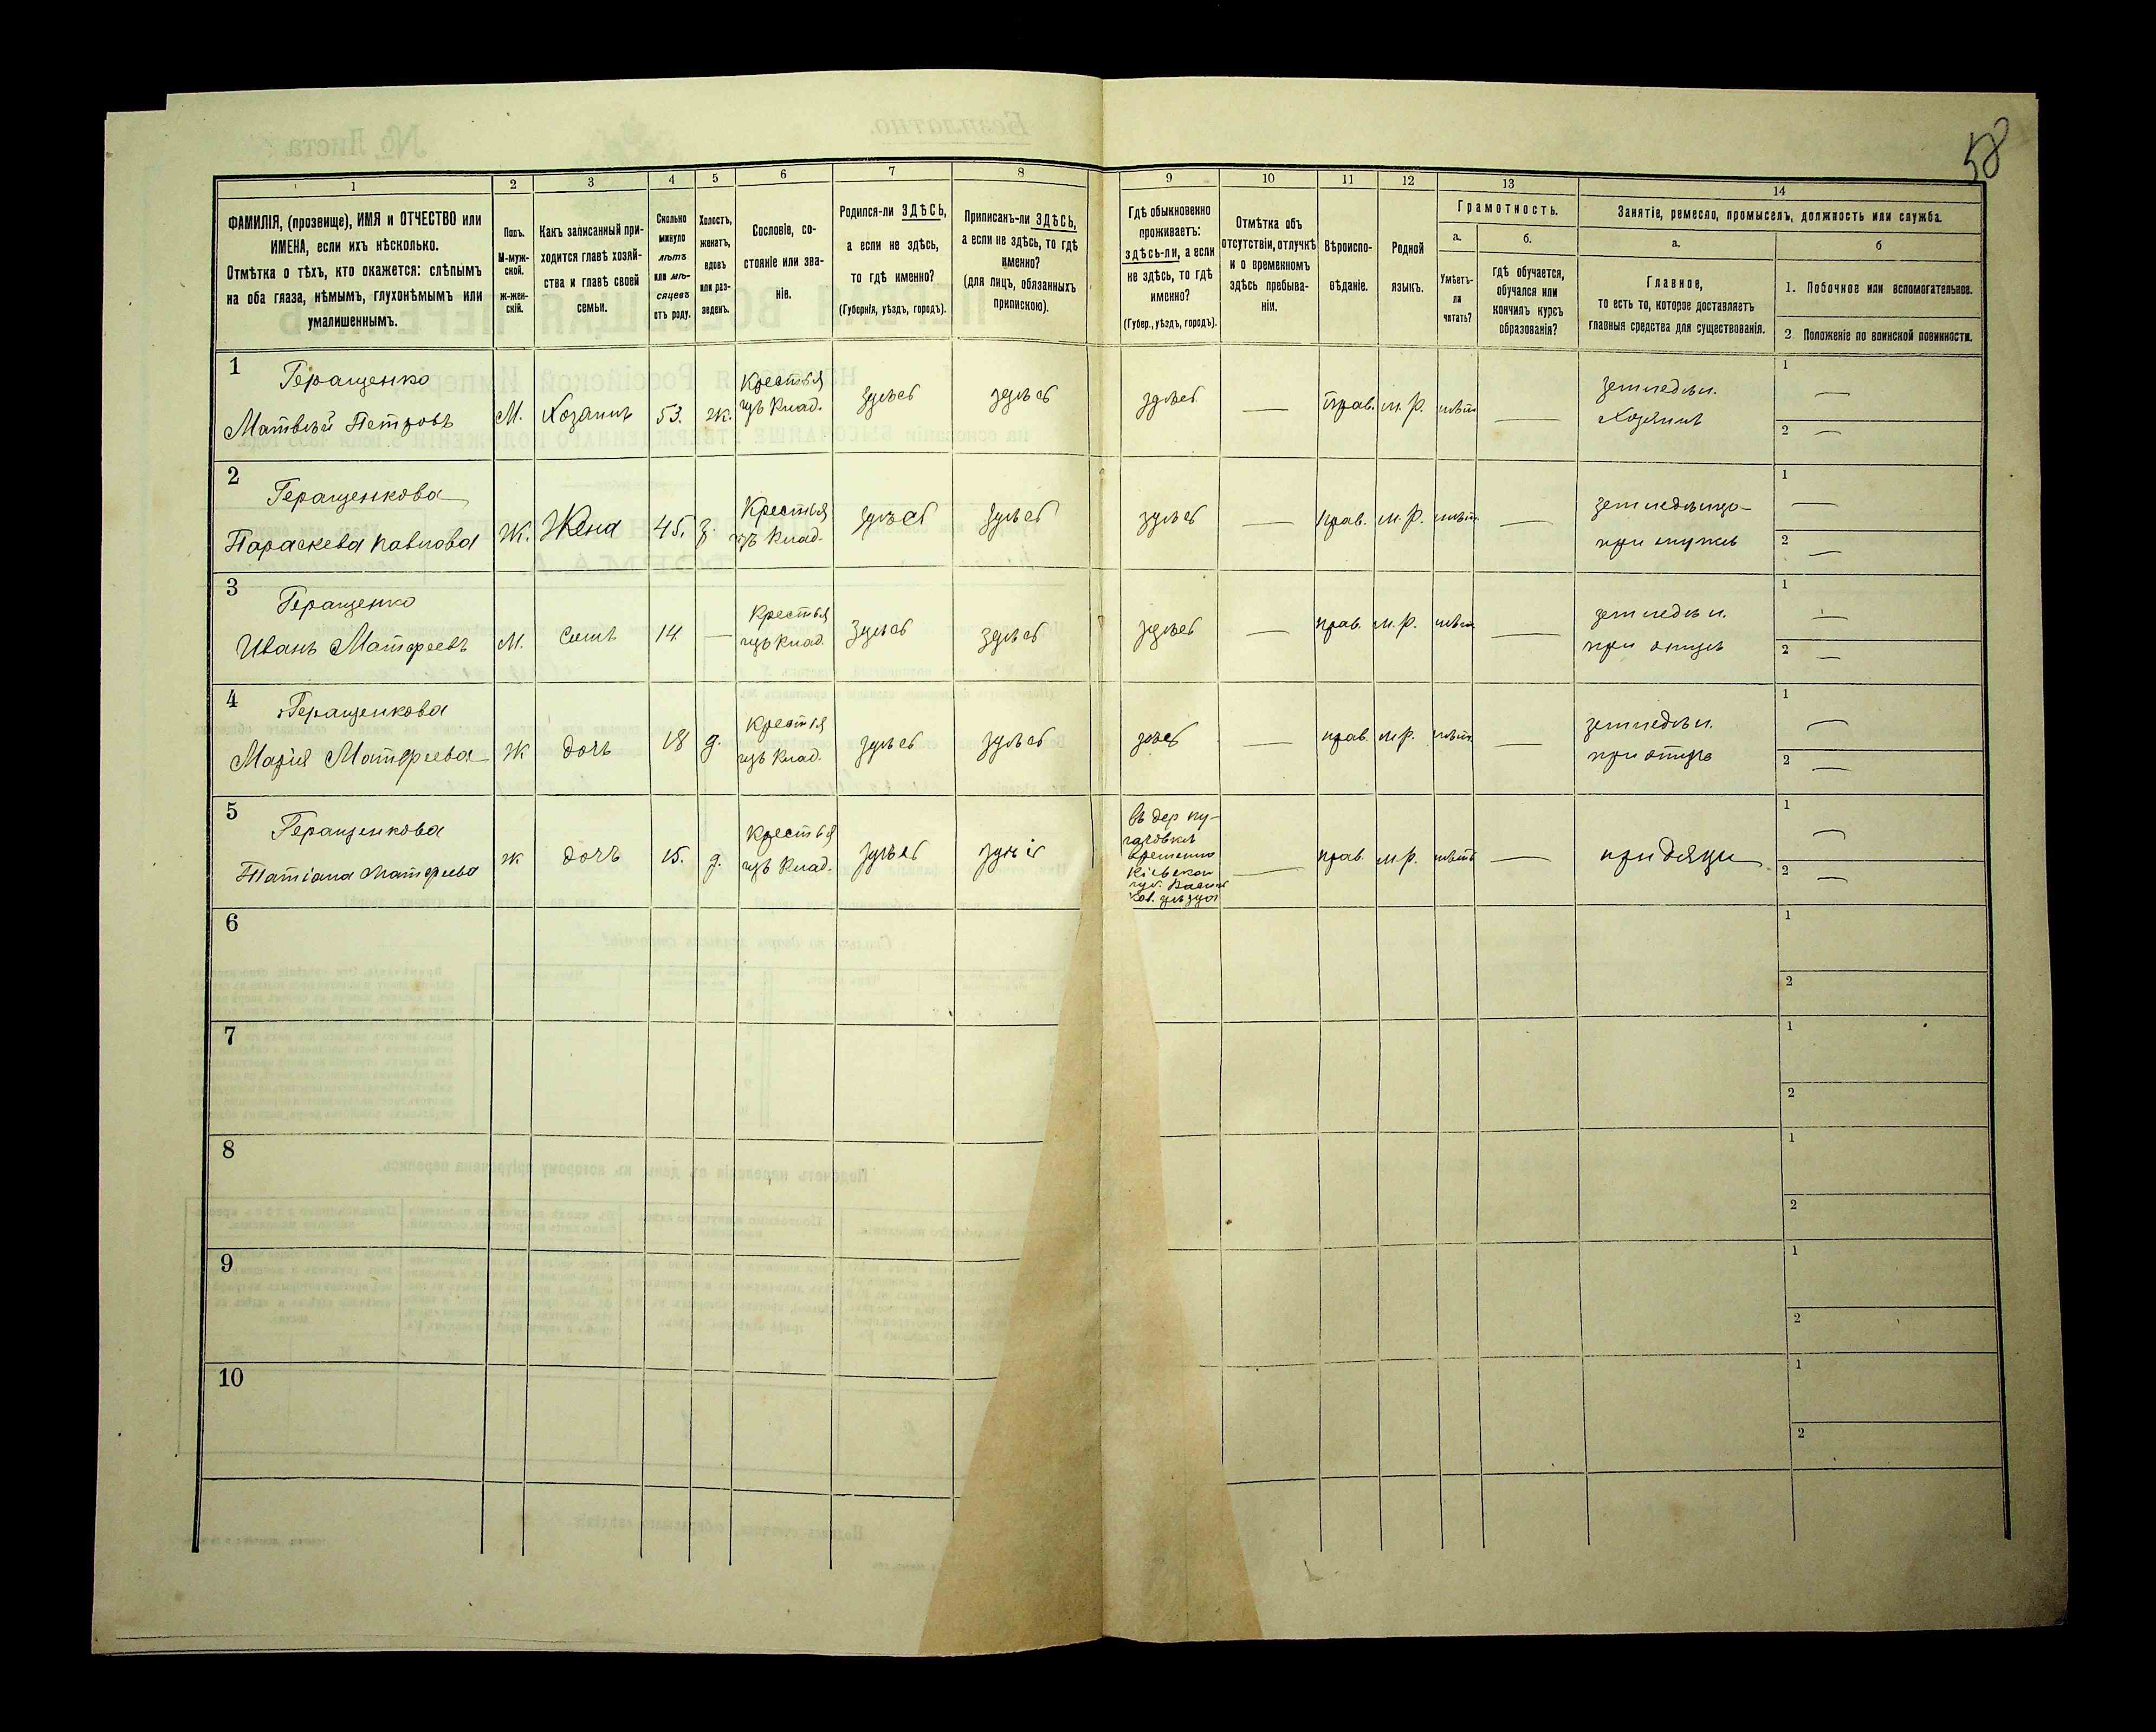 58
1
2
3
4
5
6
7
8
9
10
11
12
13
14
ФАМИЛІЯ, (прозвище), ИМЯ и ОТЧЕСТВО или
ИМЕНА, если ихъ нѣсколько.
Отмѣтка о тѣхъ, кто окажется: слѣпымъ
на оба глаза, нѣмымъ, глухонѣмымъ или
умалишеннымъ.
Полъ.
М-муж-
ской.
Ж-жен-
скій.
Какъ записанный при-
ходится главѣ хозяй-
ства и главѣ своей
семьи.
Сколько
минуло
лѣтъ
или мѣ-
сяцевъ
отъ роду.
Холостъ,
женатъ,
вдовъ
или раз-
веденъ.
Сословіе, со-
стояніе или зва-
ніе.
Родился-ли ЗДѢСЬ,
а если не здѣсь,
то гдѣ именно?
(Губернія, уѣздъ, городъ).
Приписанъ-ли ЗДѢСЬ,
а если не здѣсь, то гдѣ
именно?
(для лицъ, обязанныхъ
припискою).
Гдѣ обыкновенно
проживаетъ:
здѣсь-ли, а если
не здѣсь, то гдѣ
именно?
(Губер., уѣздъ, городъ).
Отмѣтка объ
отсутствіи, отлучкѣ
и о временномъ
здѣсь пребыва-
ніи.
Вѣроиспо-
вѣданіе.
Родной
языкъ.
Грамотность.
а.
Умѣетъ-
ли
читать?
б.
гдѣ обучается,
обучался или
кончилъ курсъ
образованія?
Занятіе, ремесло, промыселъ, должность или служба.
а.
Главное,
то есть то, которое доставляетъ
главныя средства для существованія.
б
1. Побочное или вспомогательное.
2. Положеніе по воинской повинности.
1
Геращенко
Матвѣй Петровъ
М.
Хозяинъ
53.
ж.
Крестья
изъ влад.
здѣсь
здѣсь
здѣсь
—
Прав.
м. р.
нѣтъ
—
земледѣл.
Хозяинъ
1 —
2 —
2
Геращенкова
Параскева Павлова
Ж.
Жена
45.
з.
Крестья
изъ влад.
здѣсь
здѣсь
здѣсь
—
прав.
м. р.
нѣтъ
—
при мужѣ
1 —
2 —
3
Геращенко
Иванъ Матфеевъ
М.
Сынъ
14
—
Крестья
изъ влад.
здѣсь
здѣсь
здѣсь
—
прав.
м. р.
нѣтъ
—
земледѣл.
при отцѣ
1 —
2 —
4
Геращенкова
Марія Матфеева
Ж
дочь
18
д.
Крестья
изъ влад.
здѣсь
здѣсь
здѣсь
—
прав.
м. р.
нѣтъ
—
земледѣл.
при отцѣ
1 —
2 —
5
Геращенкова
Татіана Матфеева
Ж
дочь
15.
д.
Крестья
изъ влад.
здѣсь
здѣсь
въ дер
временно
Кіевской
губ.
уѣзда
—
прав.
м. р.
нѣтъ
—
при
1 —
2 —
6
1
2
7
1
2
8
1
2
9
1
2
10
1
2